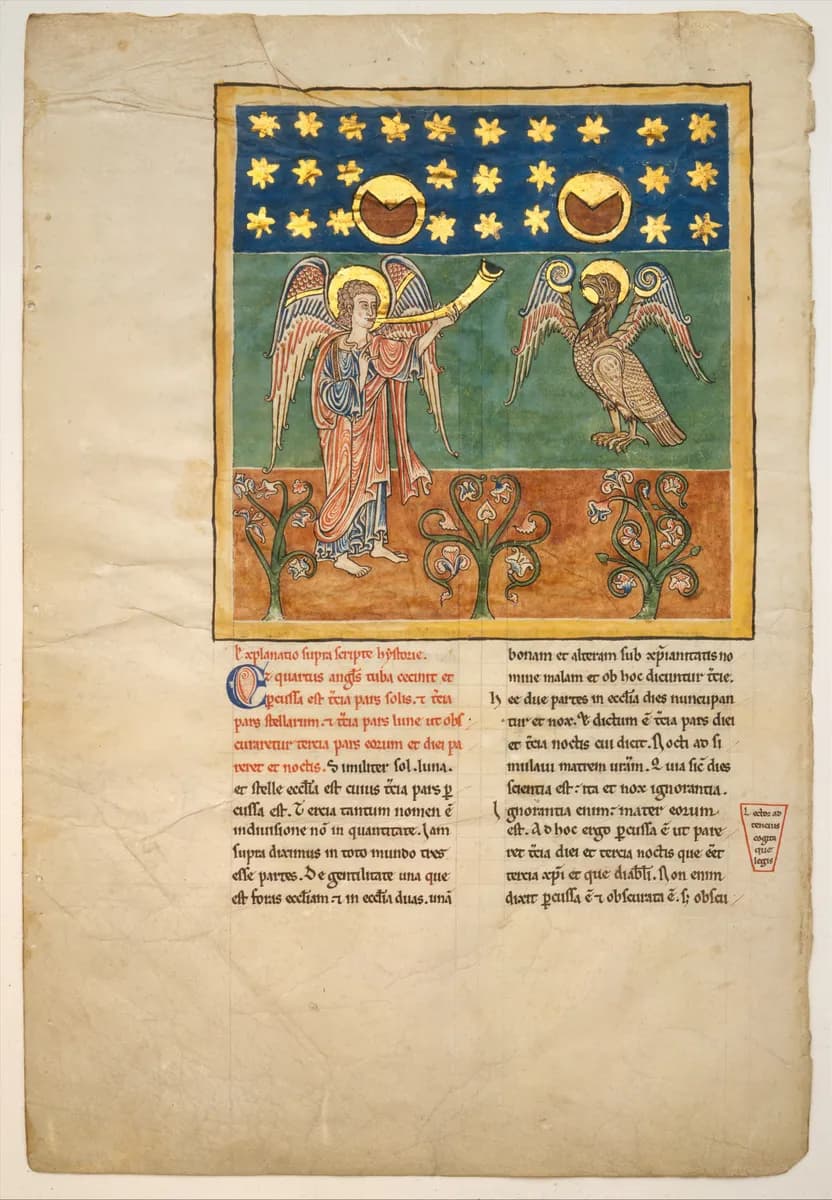 Explanatio supra scripte hystorie.
Et quartus angls tuba cecinit et
pcussa est tcia pars solis. ⁊ tcia
pars stellarum. ⁊ tcia pars lune ut obs
curaretur tercia pars eorum et diei pa
reret et noctis. Similiter sol. luna.
et stelle ecclia est cuius tcia pars p
cussa est. Tercia tantum nomen ē
indiuisione nō in quantitate. Iam
supra diximus in toto mundo tres
esse partes. De gentilitate una que
est foras eccliam ⁊ in ecclia duas. unā
bonam et alteram sub xpianitatis no
mine malam et ob hoc dicuntur tcie.
hee due partes in ecclia dies nuncupan
tur et nox. Vt dictum ē tcia pars diei
et tcia noctis cui dicit. Nocti ad si
mulaui matrem urām. Quia sic dies
scientia est: ita et nox ignorantia.
Ignorantia enim: mater eorum
est. Ad hoc ergo pcussa ē ut pare
ret tcia diei et tercia noctis que eēt
tercia xpi et que diabli. Non enim
dixit pcussa ē ⁊ obscurata ē. s; obscu
Lector ad
tencius
cogita
que
legis